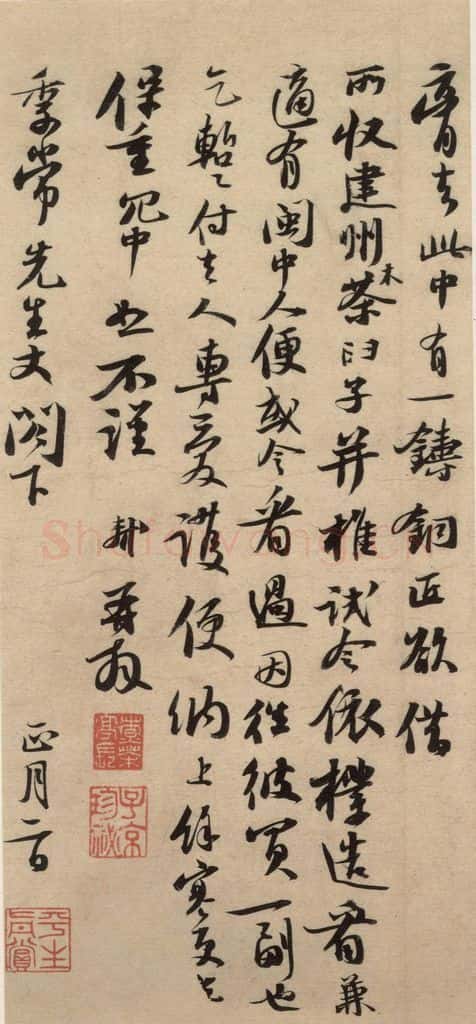 膏去此中有一鑄銅匠欲借
所收建州木茶臼子并椎試令依樣造看兼
適有閩中人便或令看過因往彼買一副也
乞暫付去人專愛護便納上餘寒更乞
保重冗中恕不謹 軾再拜
季常先生丈閣下
正月二日
子京珍藏
平生真賞